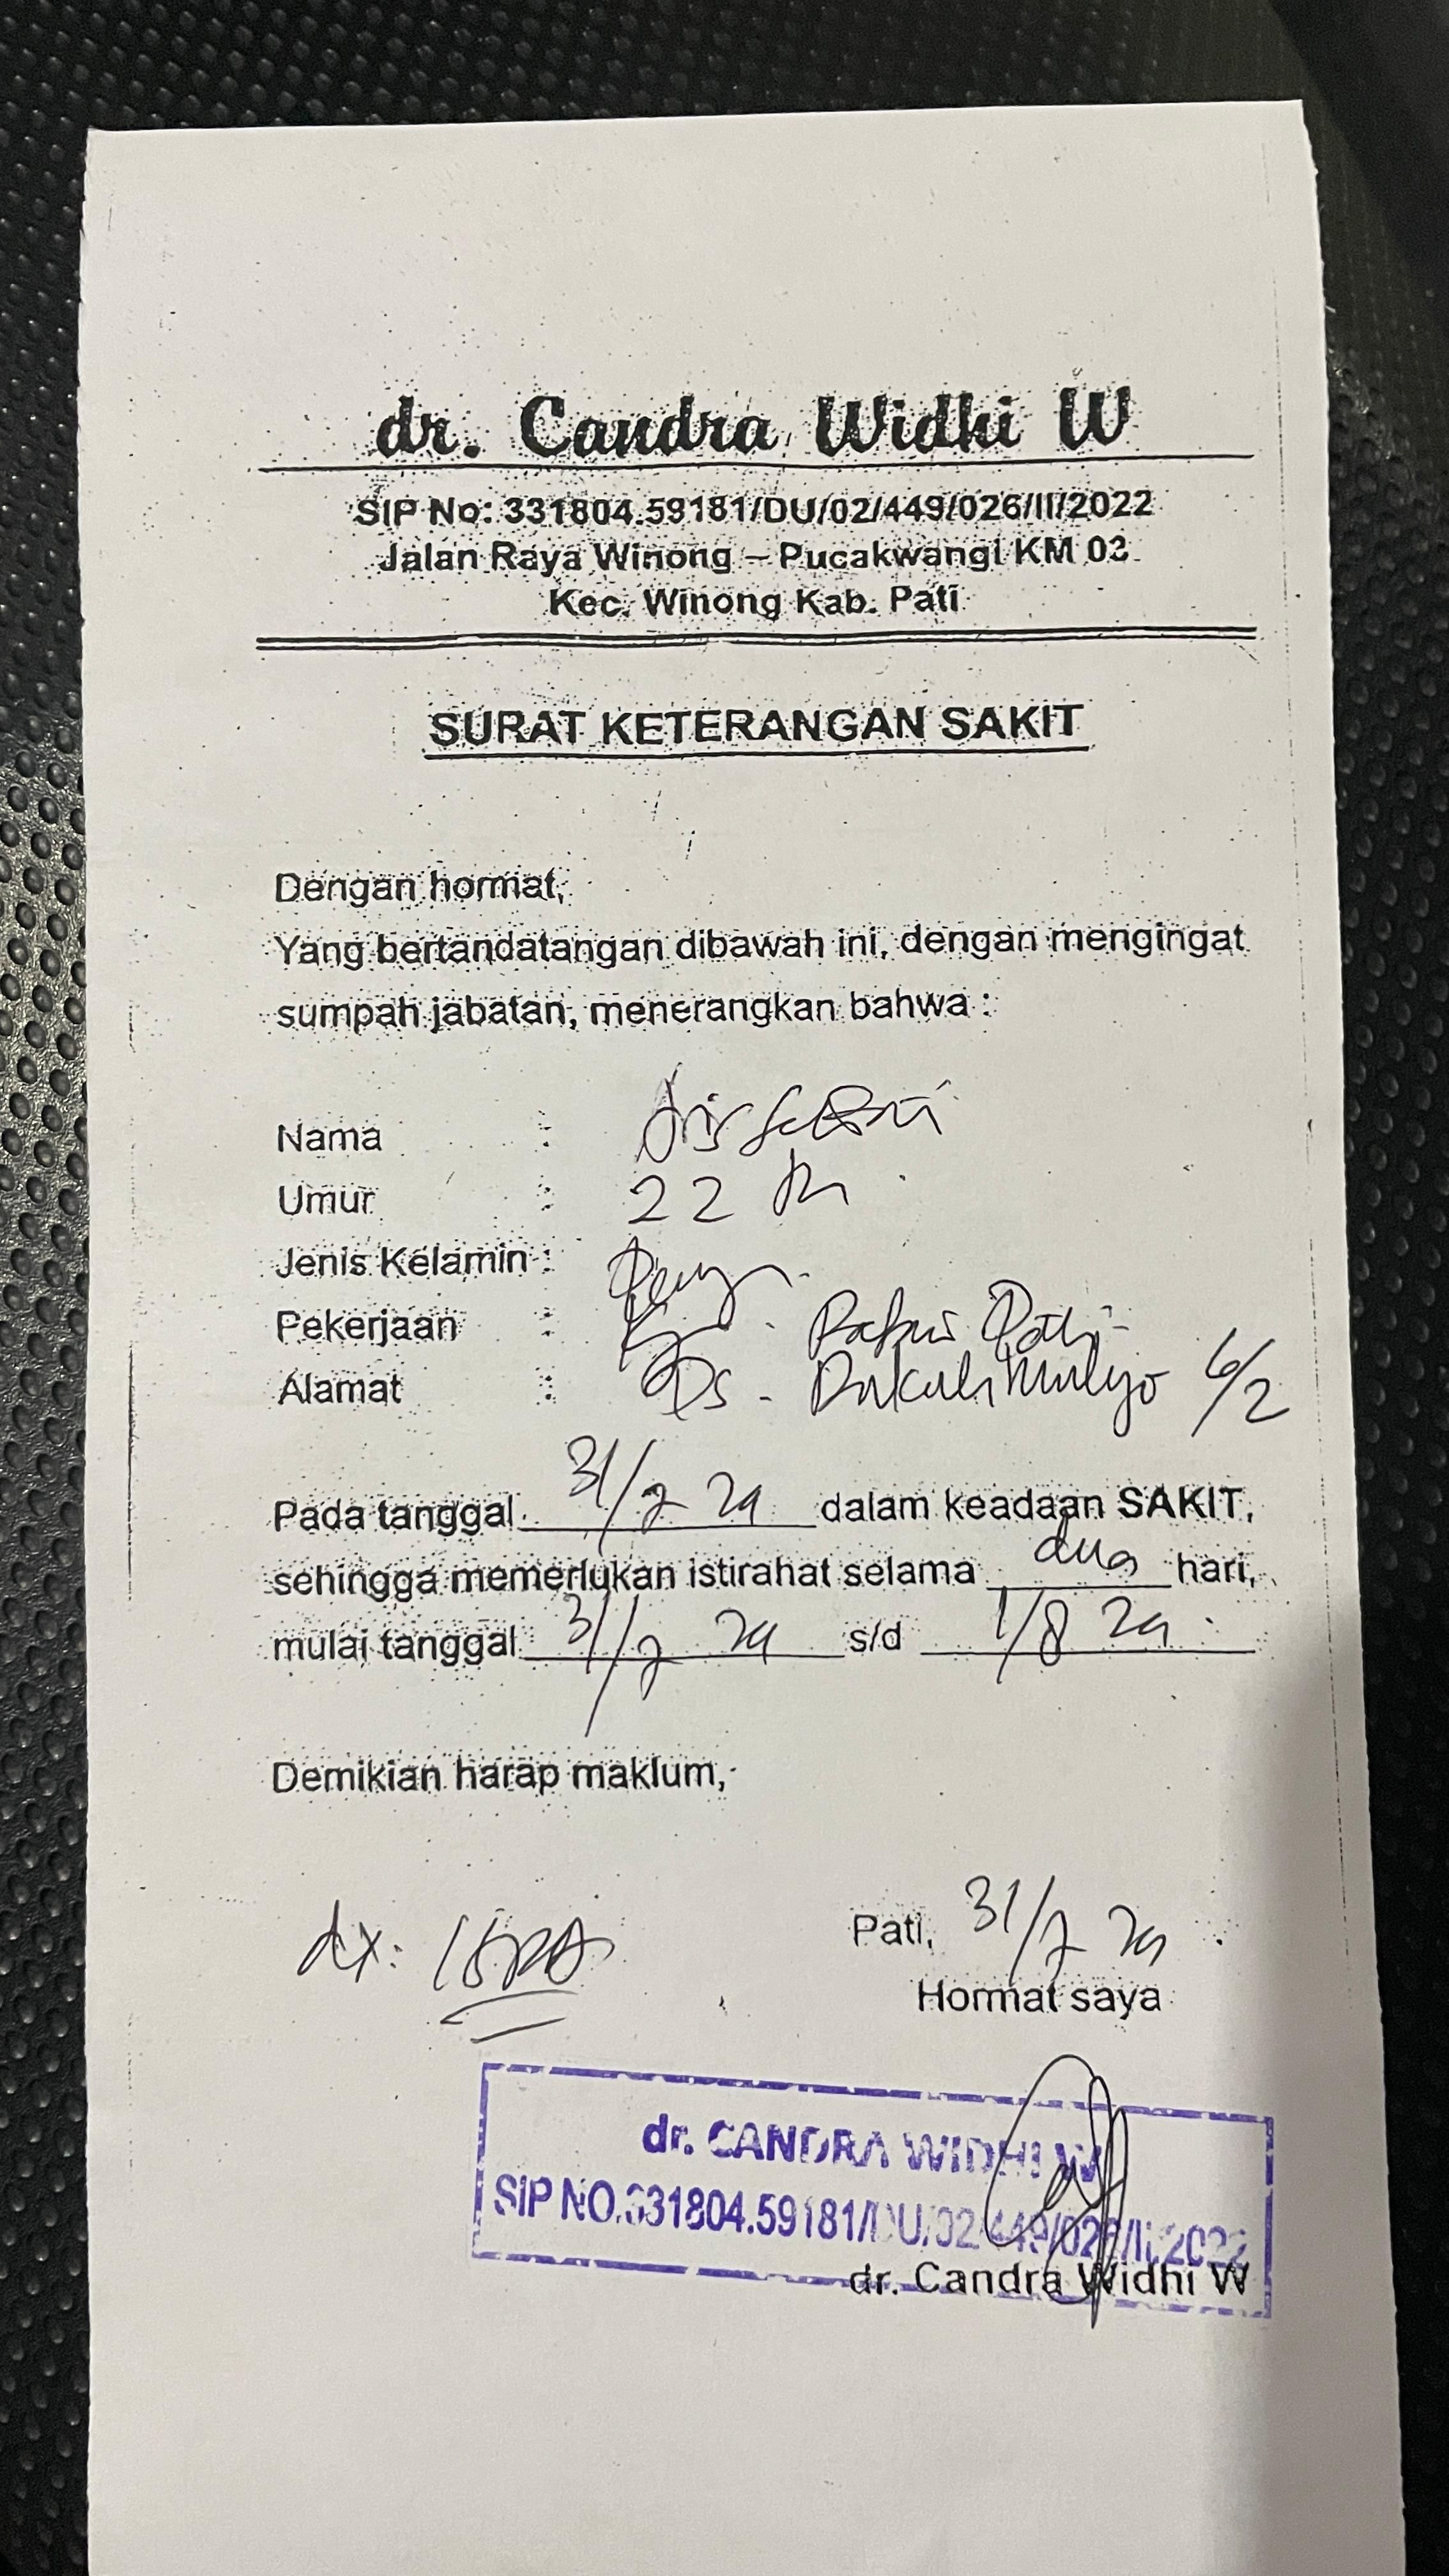 dr. Candra Widhi W
SIP No: 331804.59181/DU/02/449/026/II/2022
Jalan Raya Winong – Pucakwangi KM 03
Kec. Winong Kab. Pati
SURAT KETERANGAN SAKIT
Dengan hormat,
Yang bertandatangan dibawah ini, dengan mengingat
sumpah jabatan, menerangkan bahwa :
Nama :
Umur : 22 th
Jenis Kelamin :
Pekerjaan :
Alamat : Ds - 6/2
Pada tanggal 31/7 24 dalam keadaan SAKIT,
sehingga memerlukan istirahat selama dua hari,
mulai tanggal 31/7 24 s/d 1/8 24
Demikian harap maklum,
dx: ISPA
Pati, 31/7 24
Hormat saya
dr. CANDRA WIDHI W
SIP NO.331804.59181/DU/02/449/026/II/2022
dr. Candra Widhi W